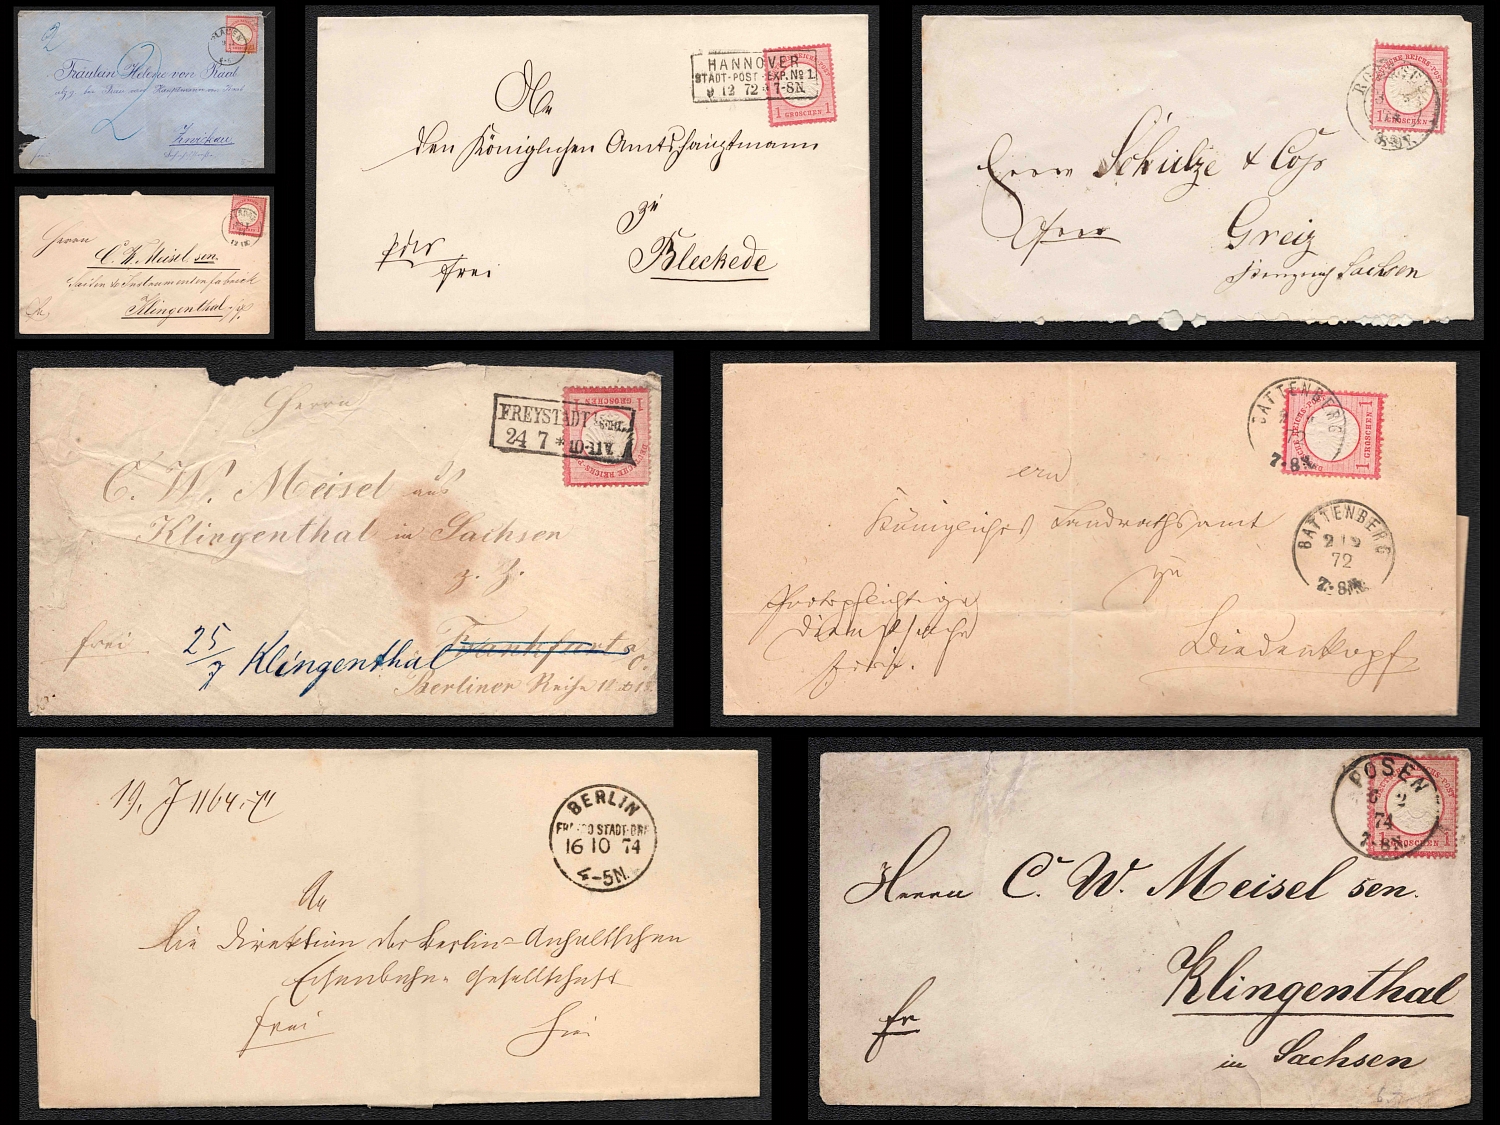 2
PLAUEN
Fräulein Helene von Raab
2
Zwickau
Herrn
C. W. Meisel sen.
Saiten & Instrumentenfabrik
Klingenthal
HANNOVER
STADT-POST-EXP. No 1
9 12 72 * 7-8N
1 GROSCHEN 1
An
den Königlichen Amtshauptmann
zu
Bleckede
frei
DEUTSCHE REICHS-POST
1 GROSCHEN 1
Herrn Schulze & Co
Greiz
Sachsen
FREYSTADT i. SCHL.
24 7 * 10-11V.
1 GROSCHEN 1
DEUTSCHE REICHS-POST
Herrn
C. W. Meisel aus
Klingenthal in Sachsen
z. Z.
frei
25/7 Klingenthal
Frankfurt a/O.
Berliner
BATTENBERG
7-8N.
DEUTSCHE REICHS-POST
1 GROSCHEN 1
BATTENBERG
2 12
72
7-8N.
Königliches Landrathsamt
zu
Portopflichtige
Dienstsache
frei.
Biedenkopf
BERLIN
16 10 74
4-5N.
An
die Direktion der Berlin-Anhaltschen
Eisenbahn-Gesellschaft
frei
hier
POSEN
6 2
74
7-8N.
DEUTSCHE REICHS-POST
1 GROSCHEN 1
Herrn C. W. Meisel sen.
Klingenthal
fr
in Sachsen